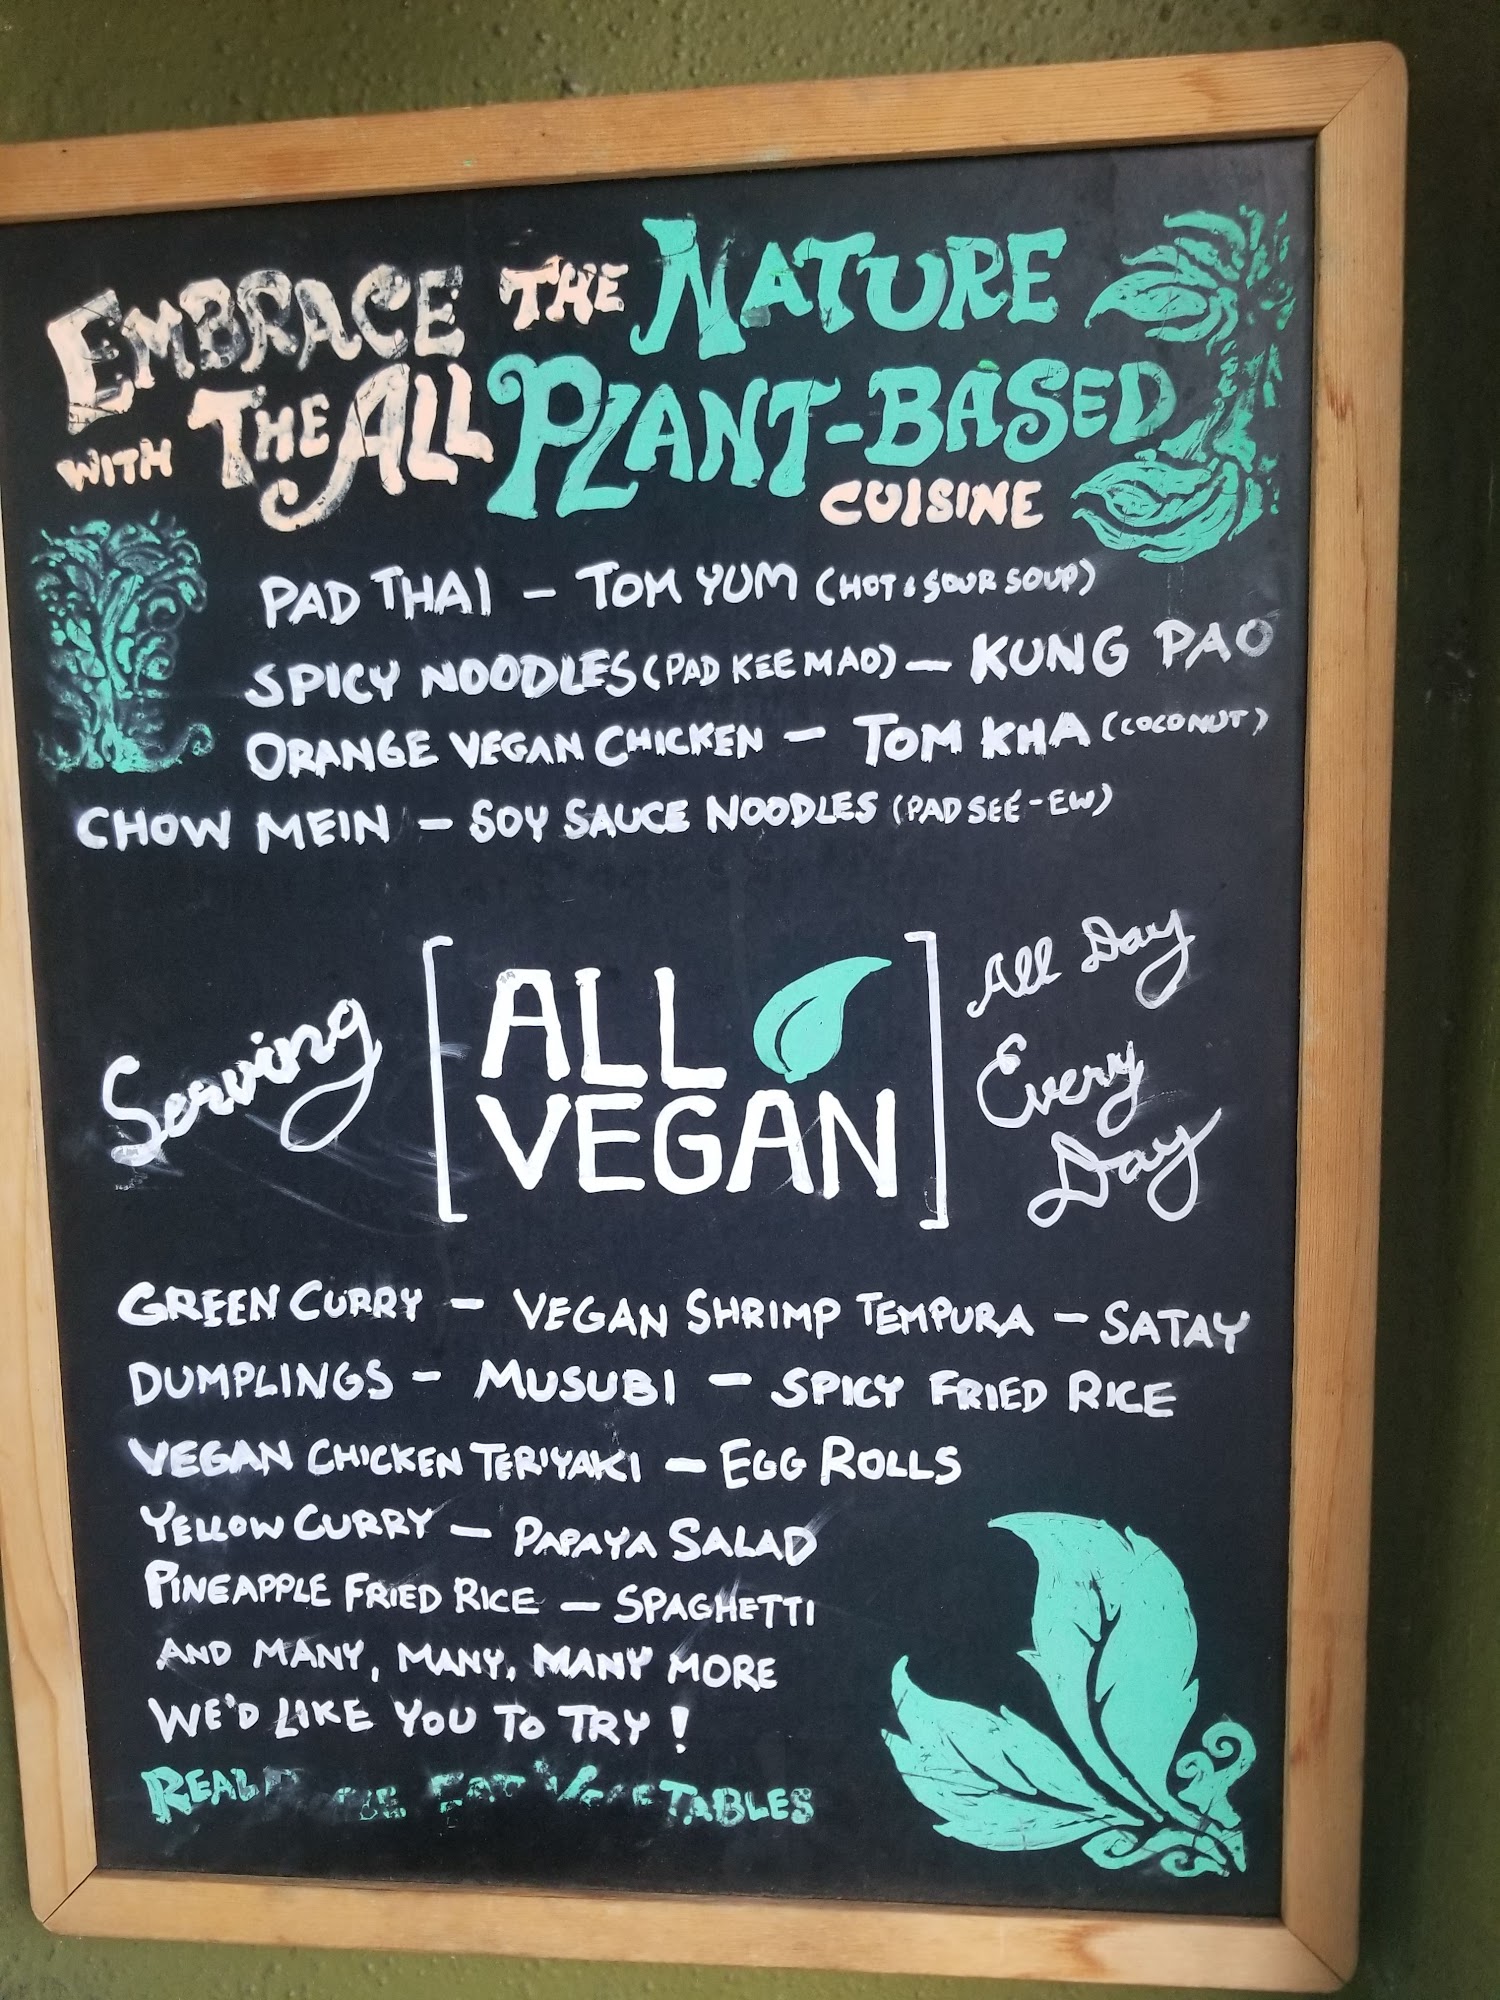 EMBRACE THE NATURE
WITH THE ALL PLANT-BASED
CUISINE
PAD THAI - TOM YUM (HOT & SOUR SOUP)
SPICY NOODLES (PAD KEE MAO) - KUNG PAO
ORANGE VEGAN CHICKEN - TOM KHA (COCONUT)
CHOW MEIN - SOY SAUCE NOODLES (PAD SEE-EW)
Serving
[ALL
VEGAN]
All Day
Every
Day
GREEN CURRY - VEGAN SHRIMP TEMPURA - SATAY
DUMPLINGS - MUSUBI - SPICY FRIED RICE
VEGAN CHICKEN TERIYAKI - EGG ROLLS
YELLOW CURRY - PAPAYA SALAD
PINEAPPLE FRIED RICE - SPAGHETTI
AND MANY, MANY, MANY MORE
WE'D LIKE YOU TO TRY!
REAL EAT VEGETABLES